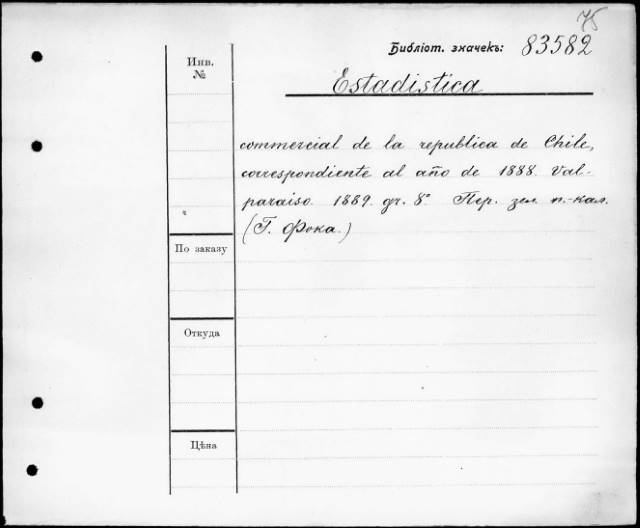 75
Библіот. значекъ: 83582
Инв.
№
Estadistica
commercial de la republica de Chile,
correspondiente al año de 1888. Val-
paraiso. 1889. gr. 8° Пер. зел. п.-кал.
(Г. Фока.)
По заказу
Откуда
Цѣна